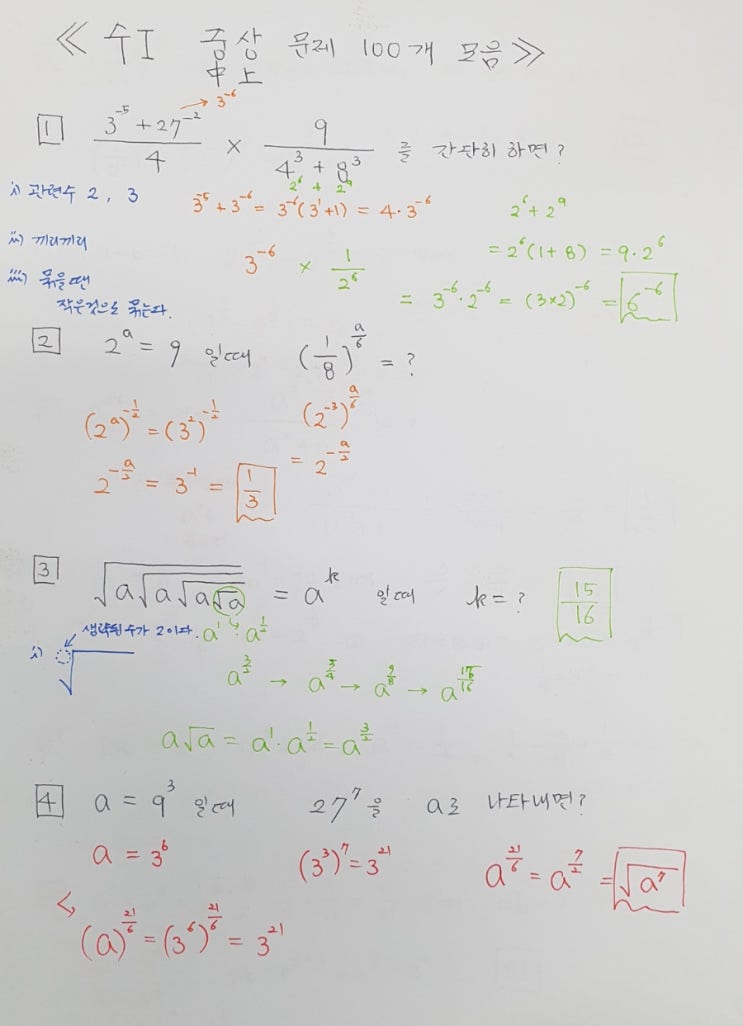 ≪ 수I 중상 문제 100개 모음 ≫
中上
1 (3^-5 + 27^-2)/4 × 9/(4^3 + 8^3) 를 간단히 하면?
→ 3^-6
2^6 + 2^9
i) 관련수 2, 3
3^-5 + 3^-6 = 3^-6(3^1+1) = 4·3^-6
2^6 + 2^9
ii) 끼리끼리
3^-6 × 1/2^6
= 2^6(1+8) = 9·2^6
iii) 묶을때
작은것으로 묶는다.
= 3^-6·2^-6 = (3×2)^-6 = 6^-6
2 2^a = 9 일때 (1/8)^(a/6) = ?
(2^a)^(-1/2) = (3^2)^(-1/2)
(2^-3)^(a/6)
2^(-a/2) = 3^-1 = 1/3
= 2^(-a/2)
3 √(a√(a√(a√a))) = a^k 일때 k = ? 15/16
생략된 수가 2이다.
a^1 · a^(1/2)
i) √
a^(3/2) → a^(5/4) → a^(9/8) → a^(17/16)
a√a = a^1 · a^(1/2) = a^(3/2)
4 a = 9^3 일때 27^7을 a로 나타내면?
a = 3^6
(3^3)^7 = 3^21
a^(21/6) = a^(7/2) = √a^7
(a)^(21/6) = (3^6)^(21/6) = 3^21